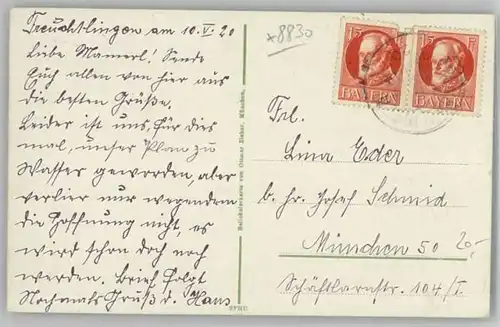 Treuchtlingen am 10.V.20
Liebe Mamerl! Sende
Euch allen von hier aus
die besten Grüße.
Leider ist uns, für dies
mal, unser Plan zu
Wasser geworden, aber
verlier nur wegen dem
die Hoffnung nicht, es
wird schon doch noch
werden. Brief folgt
Nochmals Gruß d. Hans
*8830
15 15
BAYERN
15
BAYERN
Frl.
Lina Eder
b. Hr. Josef Schmid
München 50
20.-
Schäftlarnstr. 104/I
Reliefkarte von Ottmar Zieher, München.